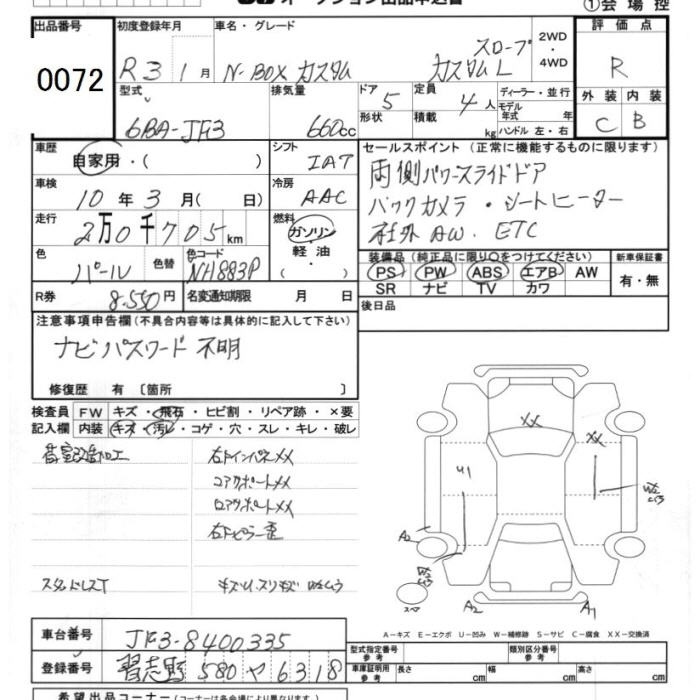 オークション出品申込書
①会場控
出品番号 0072
初度登録年月 R3 1月
車名・グレード N-BOX カスタム スロープ カスタム L
2WD・4WD
評価点 R
型式 6BA-JF3
排気量 660cc
ドア 5
形状
定員 4人
積載 kg
ディーラー・並行
モデル年式 年
ハンドル 左・右
外装 C 内装 B
車歴 自家用・( )
シフト IAT
セールスポイント (正常に機能するものに限ります)
車検 10年3月( 日)
冷房 AAC
両側パワースライドドア
バックカメラ・シートヒーター
社外AW. ETC
走行 2万0千705km
燃料 ガソリン・軽油・
色 パール 色替 色コード NH883P
装備品(純正品に限り○をつけてください)
PS PW ABS エアB AW
SR ナビ TV カワ
新車保証書 有・無
R券 8,550円
名変通知期限 月 日
後日品
注意事項申告欄(不具合内容等は具体的に記入して下さい)
ナビパスワード不明
修復歴 有 〔箇所 〕
検査員記入欄
FW キズ・飛石・ヒビ割・リペア跡・×要
内装 キズ・汚レ・コゲ・穴・スレ・キレ・破レ
右Fインパネ××
コアサポート××
右Fピラー歪
スタッドレスT
XX
XX
U1
A2
A1
スペア
A-キズ E-エクボ U-凹み W-補修跡 S-サビ C-腐食 XX-交換済
車台番号 JF3-8400335
登録番号 習志野 580 や 6318
型式指定番号 参考
類別区分番号 参考
車庫証明用 参考 長さ cm 幅 cm 高さ cm
希望出品コーナー(コーナーは各会場により異なります)